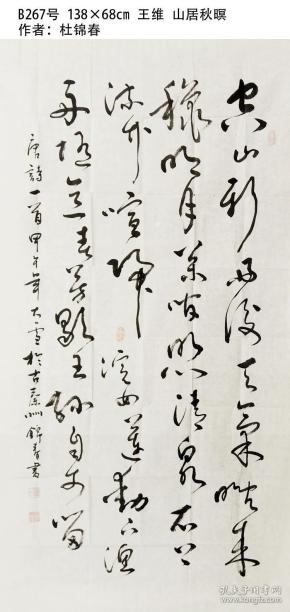 B267号 138×68cm 王维 山居秋暝
作者：杜锦春
空山新雨後天氣晚来
秋明月松间照清泉石上
流竹喧歸浣女蓮動下漁
舟随意春芳歇王孫自可留
唐詩一首甲午年大雪於古州錦春書
孔夫子旧书网